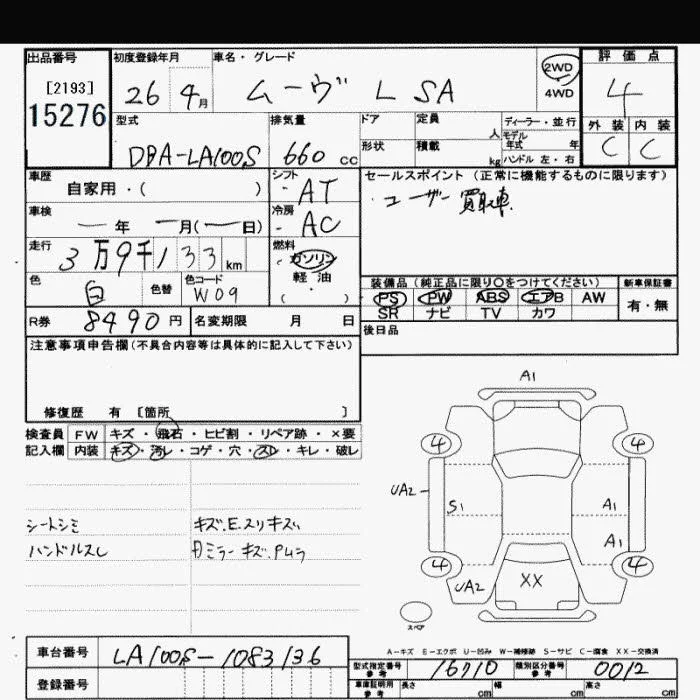 出品番号
[2193]
15276
初度登録年月
26 4月
車名・グレード
ムーヴ L SA
2WD
4WD
評価点
4
外装 内装
C C
型式
DBA-LA100S
排気量
660 cc
ドア
形状
定員 人
積載 kg
ディーラー・並行
モデル年式 年
ハンドル 左・右
車歴
自家用・( )
シフト
AT
セールスポイント (正常に機能するものに限ります)
・ユーザー買取車
車検
― 年 ― 月(― 日)
冷房
AC
走行
3万9千133 km
燃料
ガソリン
軽油
( )
色
白
色替
色コード
W09
装備品 (純正品に限り〇をつけてください)
新車保証書
PS PW ABS エアB AW
SR ナビ TV カワ
有・無
R券 8490円
名変期限 月 日
後日品
注意事項申告欄(不具合内容等は具体的に記入して下さい)
修復歴 有 [箇所 ]
検査員 FW キズ・飛石・ヒビ割・リペア跡・×要
記入欄 内装 キズ・汚レ・コゲ・穴・スレ・キレ・破レ
シートシミ
ハンドルスレ
キズ.E.スリキズ
ミラーキズ.
A1
4 4
UA2
S1
A1
A1
4 4
UA2
XX
スペア
A-キズ E-エクボ U-凹み W-補修跡 S-サビ C-腐食 XX-交換済
車台番号
LA100S-1083136
型式指定番号 参考 16710
類別区分番号 参考 0012
登録番号
車庫証明用 参考 長さ cm 幅 cm 高さ cm